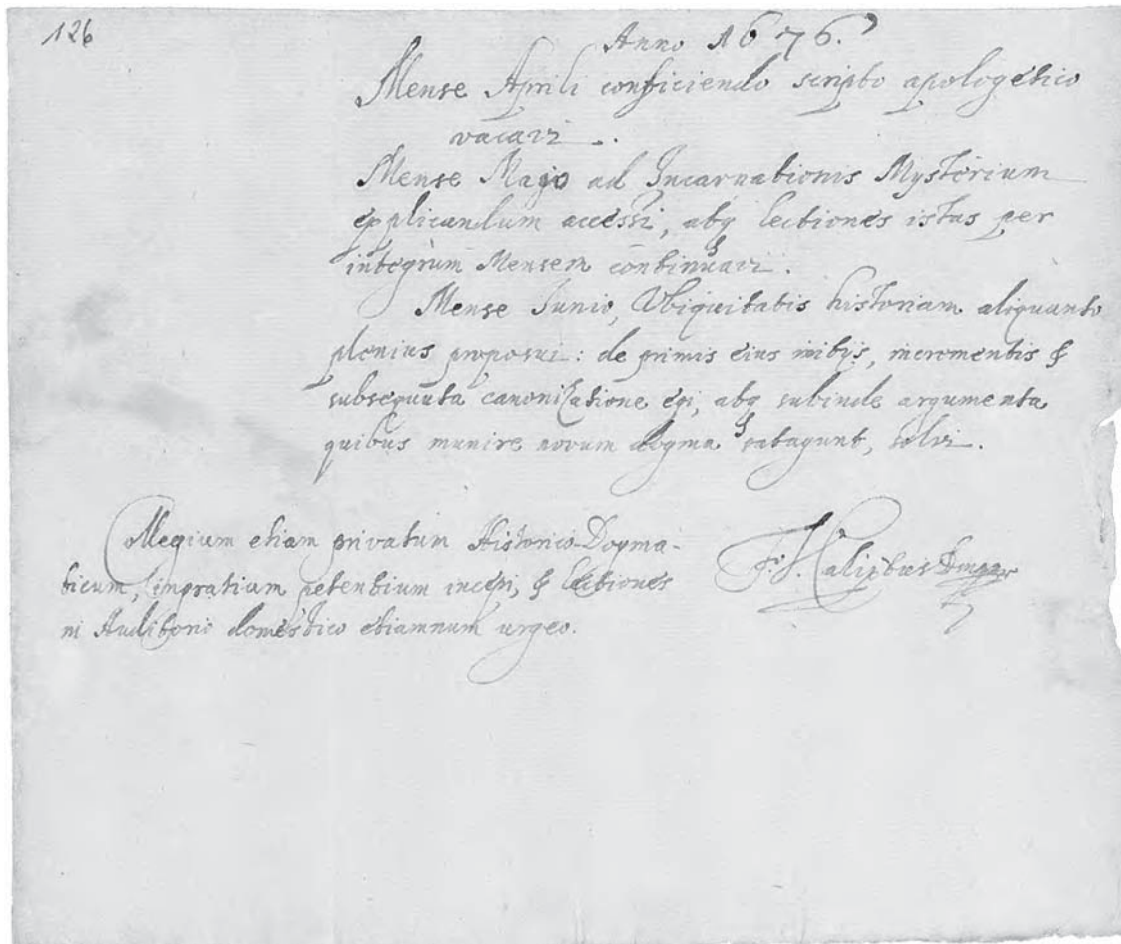 126
Anno 1676.
Mense Aprili conficiendo scripto apologetico
vacavi.
Mense Majo ad Incarnationis Mysterium
explicandum accessi, atq lectiones istas per
integrum Mensem continuavi.
Mense Junio, Ubiquitatis historiam aliquanto
plenius proposui: de primis eius initijs, incrementis &
subsequuta canonizatione egi, atq subinde argumenta
quibus munire novum dogma satagunt, solvi.
Collegium etiam privatum Historico-Dogma-
ticum, in gratiam petentium incepi, & lectiones
in Auditorio domestico etiamnum urgeo.
F. U. Calixtus